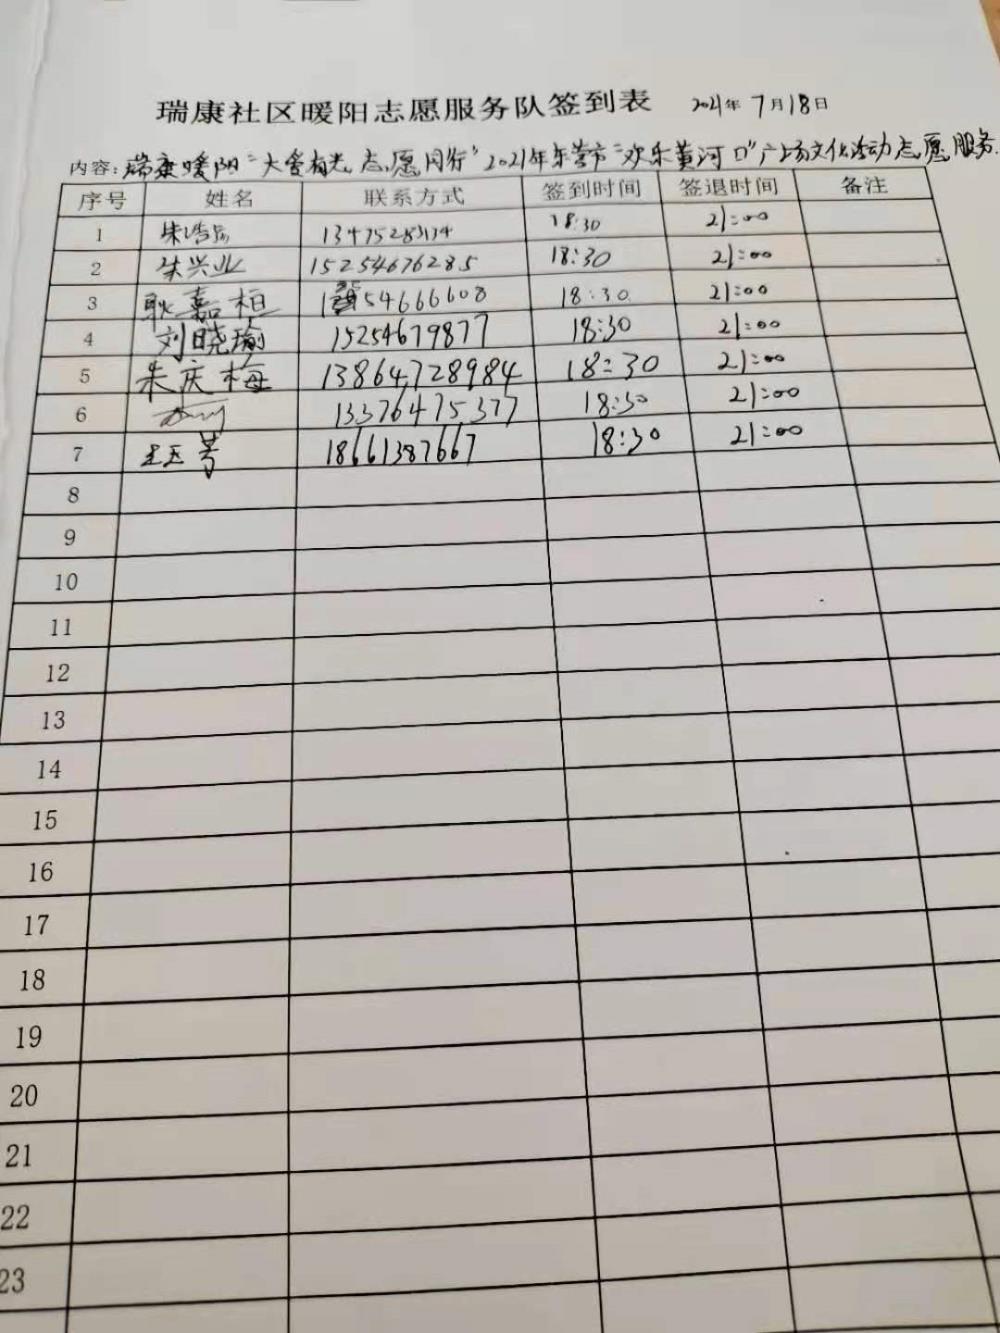 瑞康社区暖阳志愿服务队签到表 2021年 7月18日
内容: 瑞康暖阳“大爱有光 志愿同行”2021年东营市“欢乐黄河口”广场文化活动志愿服务
序号 姓名 联系方式 签到时间 签退时间 备注
1 朱 18:30 21:00
2 朱兴业 15254676285 18:30 21:00
3 耿嘉桓 54666608 18:30 21:00
4 刘晓瑜 15254679877 18:30 21:00
5 朱庆梅 13864728984 18:30 21:00
6 13376475377 18:30 21:00
7 18661387667 18:30 21:00
8
9
10
11
12
13
14
15
16
17
18
19
20
21
22
23